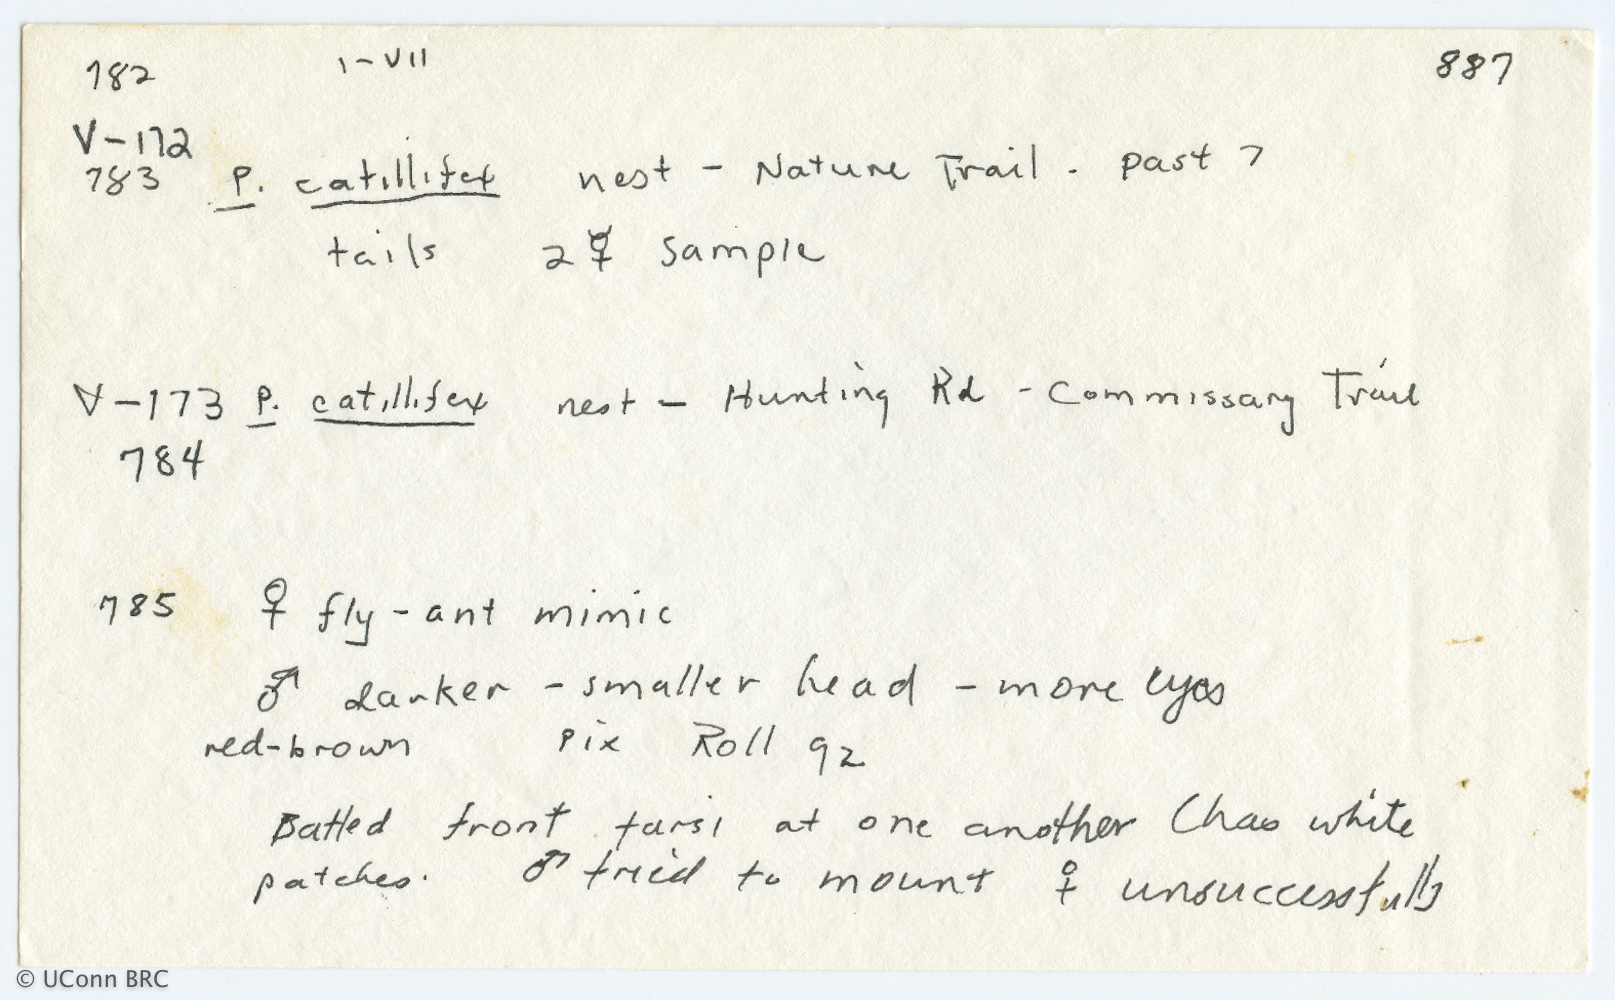 782 I-VII 887
V-172
783 P. catillifex nest - Nature Trail. past 7
tails 2☿ sample
V-173 P. catillifex nest - Hunting Rd - Commissary Trail
784
785 ♀ fly-ant mimic
♂ darker - smaller head - more eyes
red-brown pix Roll 92
Batted front tarsi at one another (has white
patches. ♂ tried to mount ♀ unsuccessfully
© UConn BRC